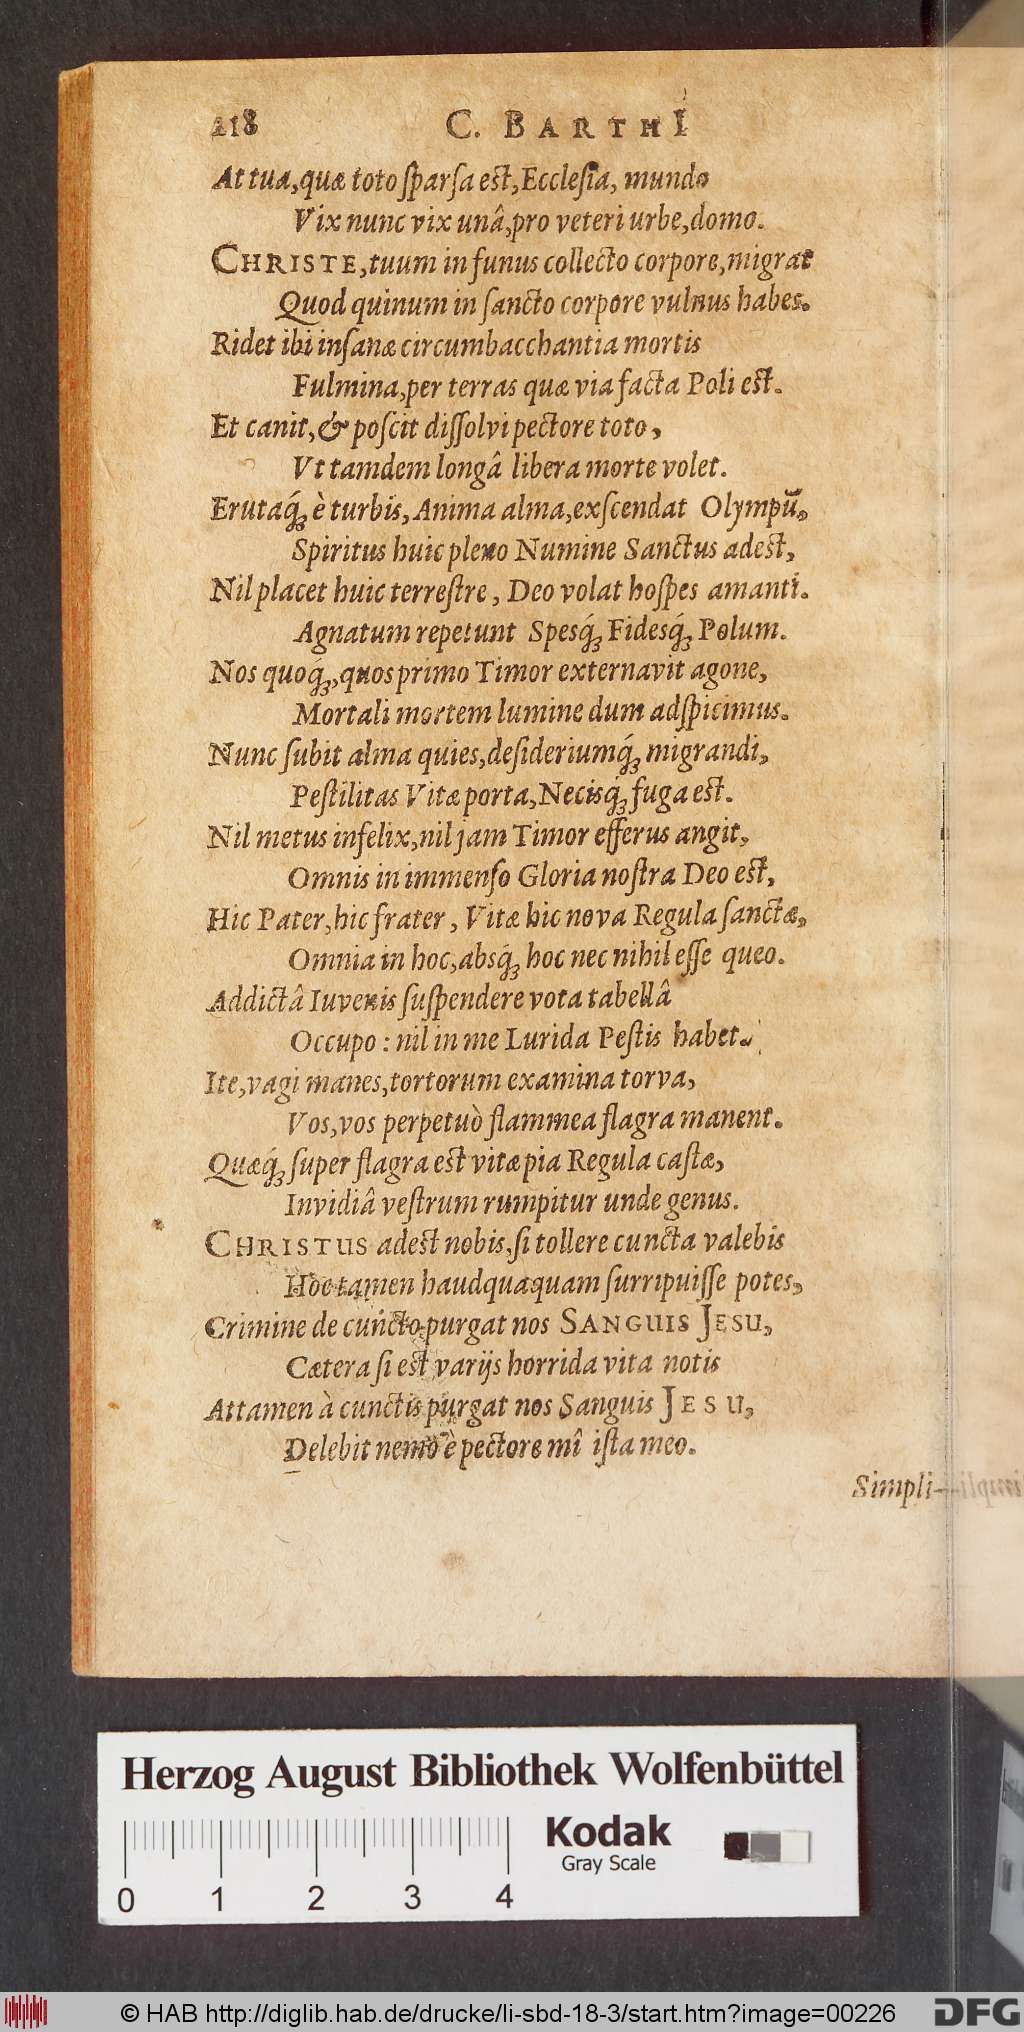 218 C. BARTHI
At tua, quæ toto sparsa est, Ecclesia, mundo
Vix nunc vix unâ, pro veteri urbe, domo.
CHRISTE, tuum in funus collecto corpore, migrat
Quod quinum in sancto corpore vulnus habes.
Ridet ibi insanæ circumbacchantia mortis
Fulmina, per terras quæ via facta Poli est.
Et canit, & poscit dissolvi pectore toto,
Vt tamdem longâ libera morte volet.
Erutaq́ꝫ è turbis, Anima alma, exscendat Olympū,
Spiritus huic pleno Numine Sanctus adest,
Nil placet huic terrestre, Deo volat hospes amanti.
Agnatum repetunt Spesq́ꝫ Fidesq́ꝫ Polum.
Nos quoq́ꝫ, quos primo Timor externavit agone,
Mortali mortem lumine dum adspicimus.
Nunc subit alma quies, desideriumq́ꝫ migrandi,
Pestilitas Vitæ porta, Necisq́ꝫ fuga est.
Nil metus infelix, nil jam Timor efferus angit,
Omnis in immenso Gloria nostra Deo est,
Hic Pater, hic frater, Vitæ hic nova Regula sanctæ,
Omnia in hoc, absq́ꝫ hoc nec nihil esse queo.
Addictâ Iuvenis suspendere vota tabellâ
Occupo: nil in me Lurida Pestis habet.
Ite, vagi manes, tortorum examina torva,
Vos, vos perpetuò flammea flagra manent.
Quæq́ꝫ super flagra est vitæ pia Regula castæ,
Invidiâ vestrum rumpitur unde genus.
CHRISTUS adest nobis, si tollere cuncta valebis
Hoc tamen haudquaquam surripuisse potes,
Crimine de cuncto purgat nos SANGUIS JESU,
Cætera si est varijs horrida vita notis
Attamen à cunctis purgat nos Sanguis JESU,
Delebit nemo è pectore mî ista meo.
Simpli-
Herzog August Bibliothek Wolfenbüttel
Kodak
Gray Scale
0 1 2 3 4
© HAB http://diglib.hab.de/drucke/li-sbd-18-3/start.htm?image=00226 DFG